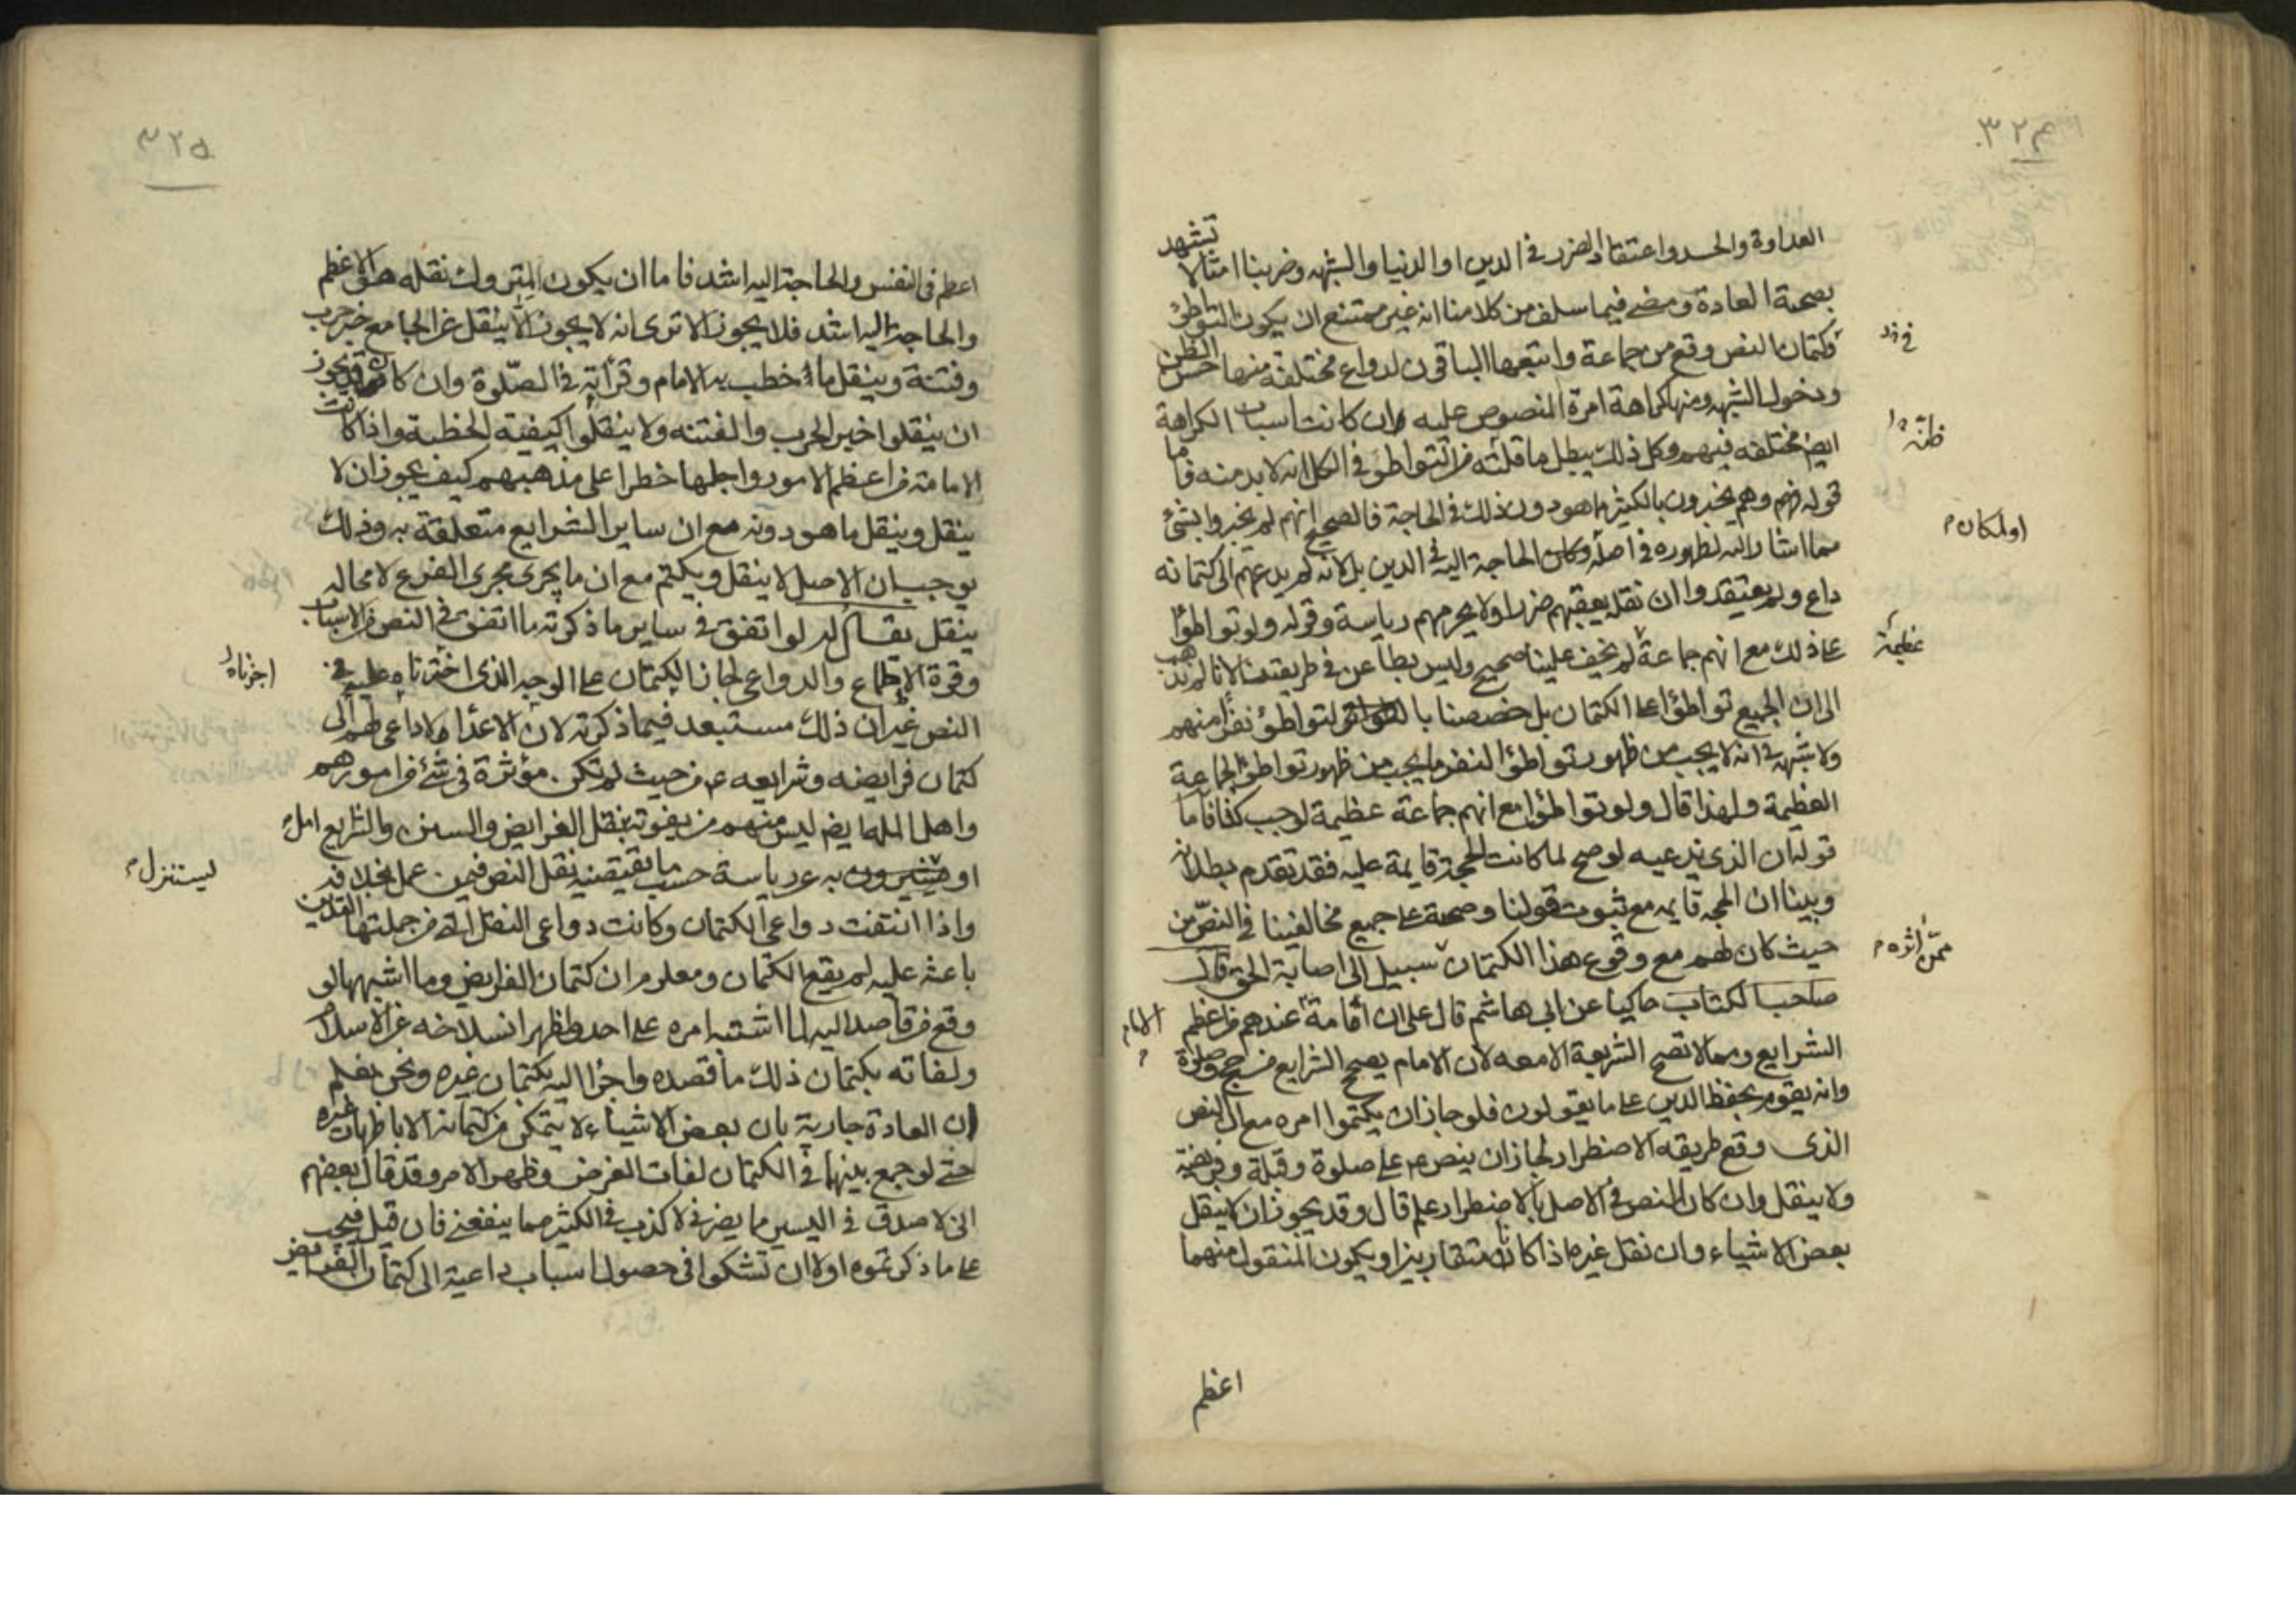 ٣٢٤
العداوة والحسد واعتقاد الضرر في الدين او الدنيا والشبهه وضربنا امثالا تشهد
بصحة العادة ومضى فيما سلف من كلامنا انه غير ممتنع ان يكون التواطؤ
وكتمان النص وقع من جماعة واتبعها الباقون لدواع مختلفة منها حسن الظن
ودخول الشبهه ومنها كراهة امرة المنصوص عليه وان كانت اسباب الكراهة
ايضا مختلفه فيهم وكل ذلك يبطل ما قلته من التواطؤ في الكل انه لا بد منه فاما
قوله فهم وهم يخبرون بالكثير مما هو دون ذلك في الحاجة فالصحيح انهم لم يخبروا بشئ
مما اشار اليه لظهوره في اصله وكان الحاجة اليه في الدين بل لانه لم يدعهم الى كتمانه
داع ولم يعتقدوا ان نقله يعقبهم ضررا ولا يحرمهم رياسة وقوله ولو تواطؤا
على ذلك مع انهم جماعة لم يخف علينا صحيح وليس بطاعن في طريقتنا لانا لم نذهب
الى ان الجميع تواطؤا على الكتمان بل خصصنا بالتواطؤ نفرا منهم
ولا شبهه في انه لا يجب من ظهور تواطؤ النفر ما يجب من ظهور تواطؤ الجماعة
العظيمة ولهذا قال ولو تواطؤا مع انهم جماعة عظيمة لوجب كذا فاما
قوله ان الذي ندعيه لو صح لما كانت الحجة قايمة عليه فقد تقدم بطلانه
وبينا ان الحجه قايمه مع ثبوت قولنا وصحته على جميع مخالفينا في النص من
حيث كان لهم مع وقوع هذا الكتمان سبيل الى اصابة الحق قال
صاحب الكتاب حاكيا عن ابي هاشم قال على ان اقامة عندهم من اعظم
الشرايع ومما لا تصح الشريعة الا معه لان الامام يصحح الشرايع من حج وصلوة
وانه يقوم بحفظ الدين على ما يقولون فلو جاز ان يكتموا امره مع ان النص
الذي وقع طريقه الاضطرار لجاز ان ينص عم على صلوة وقبلة وفريضة
ولا ينقل وان كان النص في الاصل بالاضطرار علم قال وقد يجوز ان لا ينقل
بعض الاشياء وان نقل غيره اذا كانا متقاربين او يكون المنقول منهما
اعظم
ظنه
او لمكان
عظيمة
ممن اثره
الامام
٣٢٥
اعظم في النفس والحاجة اليه اشد فاما ان يكون المتروك نقله هو الاعظم
والحاجة اليه اشد فلا يجوز الا ترى انه لا يجوز الا ينقل عن الجامع خبر حرب
وفتنة وينقل ما خطب به الامام وقرأته في الصلوة وان كان قد يجوز
ان ينقلوا خبر الحرب والفتنه ولا ينقلوا كيفية الخطبة واذا كانت
الامامة من اعظم الامور واجلها خطرا على مذهبهم كيف يجوز ان لا
ينقل وينقل ما هو دونه مع ان ساير الشرايع متعلقة به وذلك
يوجب ان الاصل لا ينقل ويكتم مع ان ما يجرى مجرى الفرع لا محاله
ينقل يقال له لو اتفق في ساير ما ذكرته ما اتفق في النص من الاسباب
وقوة الاطماع والدواعي لجاز الكتمان على الوجه الذي اخترناه عليه في
النص غير ان ذلك مستبعد فيما ذكرته لان الاعداء لا داعي لهم الى
كتمان فرايضه وشرايعه عم من حيث لم تكن مؤثرة في شئ من امورهم
واهل المله ايضا ليس منهم من يفوته بنقل الفرايض والسنن والشرايع امل
او به عن رياسة حسب ما يقتضيه نقل النص فيمن عمل بخلافه
واذا انتفت دواعي الكتمان وكانت دواعي النقل التي من جملتها التدين
باعثه عليه لم يقع الكتمان ومعلوم ان كتمان الفرايض وما اشبهها لو
وقع من قاصد اليه لما اشتبه امره على احد ولظهر انسلاخه عن الاسلام
ولفاته بكتمان ذلك ما قصده واجرا اليه بكتمان غيره ونحن نعلم
ان العادة جارية بان بعض الاشياء لا يتمكن من كتمانه الا باظهار غيره
حتى لو جمع بينهما في الكتمان لفات الغرض وظهر الامر وقد قال بعضهم
اني لا صدق في اليسير مما يضرني لاكذب في الكثير مما ينفعني فان قيل فيجب
على ما ذكرتموه اولا ان تشكوا في حصول اسباب داعية الى كتمان الفرايض
اجزناه
يستنزل